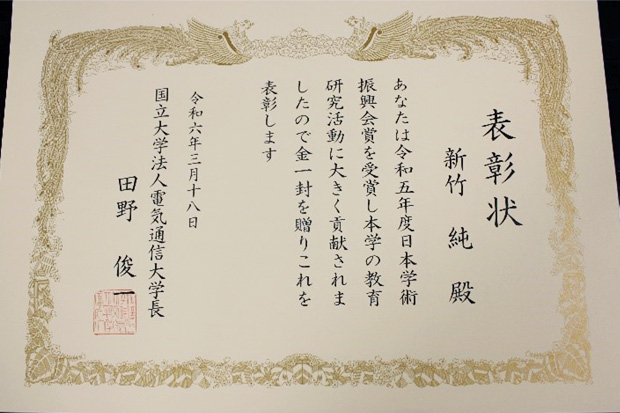 表彰状
新竹 純 殿
あなたは令和五年度日本学術
振興会賞を受賞し本学の教育
研究活動に大きく貢献されま
したので金一封を贈りこれを
表彰します
令和六年三月十八日
国立大学法人電気通信大学長
田野 俊